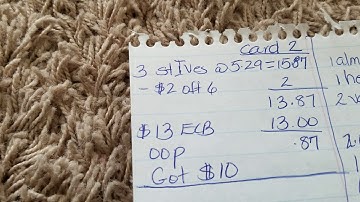 card 2
3 st Ives @ 5.29=15.87
- $2 off 6 2
13.87
$13 ECB 13.00
OOP .87
Got $10
1 alm
1 ha
2
2